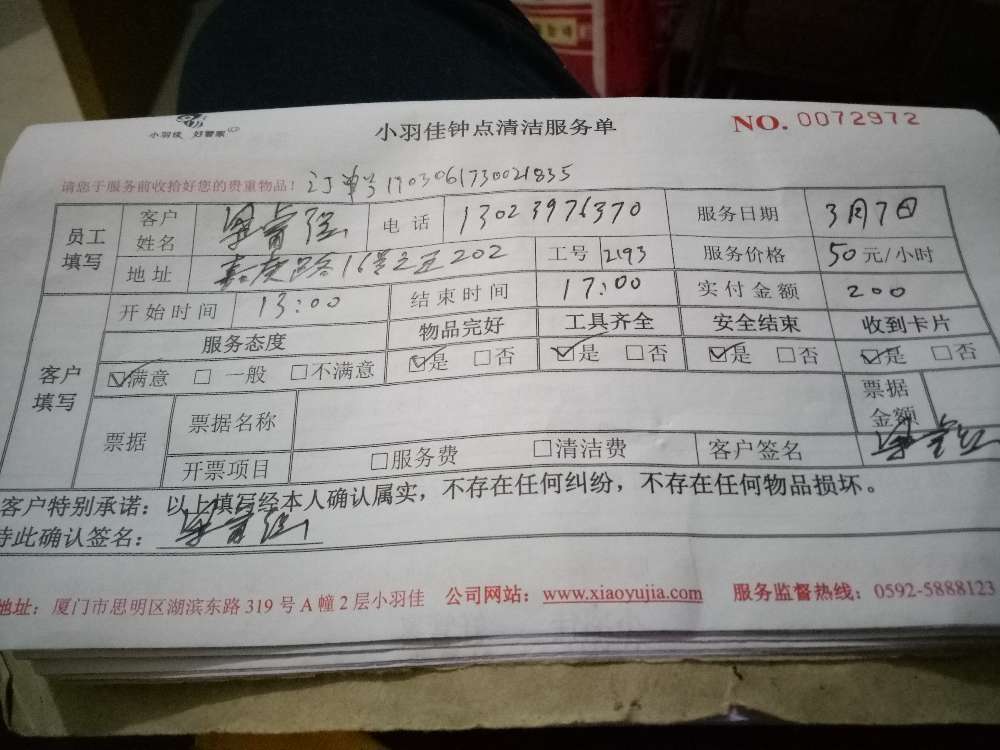 小羽佳 好管家
小羽佳钟点清洁服务单
NO. 0072972
请您于服务前收拾好您的贵重物品！ 订单号 1703061730021835
员工填写 客户姓名 电话 13023976370 服务日期 3月7日
地址 16号之五202 工号 2193 服务价格 50元/小时
客户填写 开始时间 13:00 结束时间 17:00 实付金额 200
服务态度 物品完好 工具齐全 安全结束 收到卡片
☑满意 □一般 □不满意 ☑是 □否 ☑是 □否 ☑是 □否 ☑是 □否
票据 票据名称 票据金额
开票项目 □服务费 □清洁费 客户签名
客户特别承诺：以上填写经本人确认属实，不存在任何纠纷，不存在任何物品损坏。
特此确认签名：
地址：厦门市思明区湖滨东路319号A幢2层小羽佳 公司网站：www.xiaoyujia.com 服务监督热线：0592-5888123